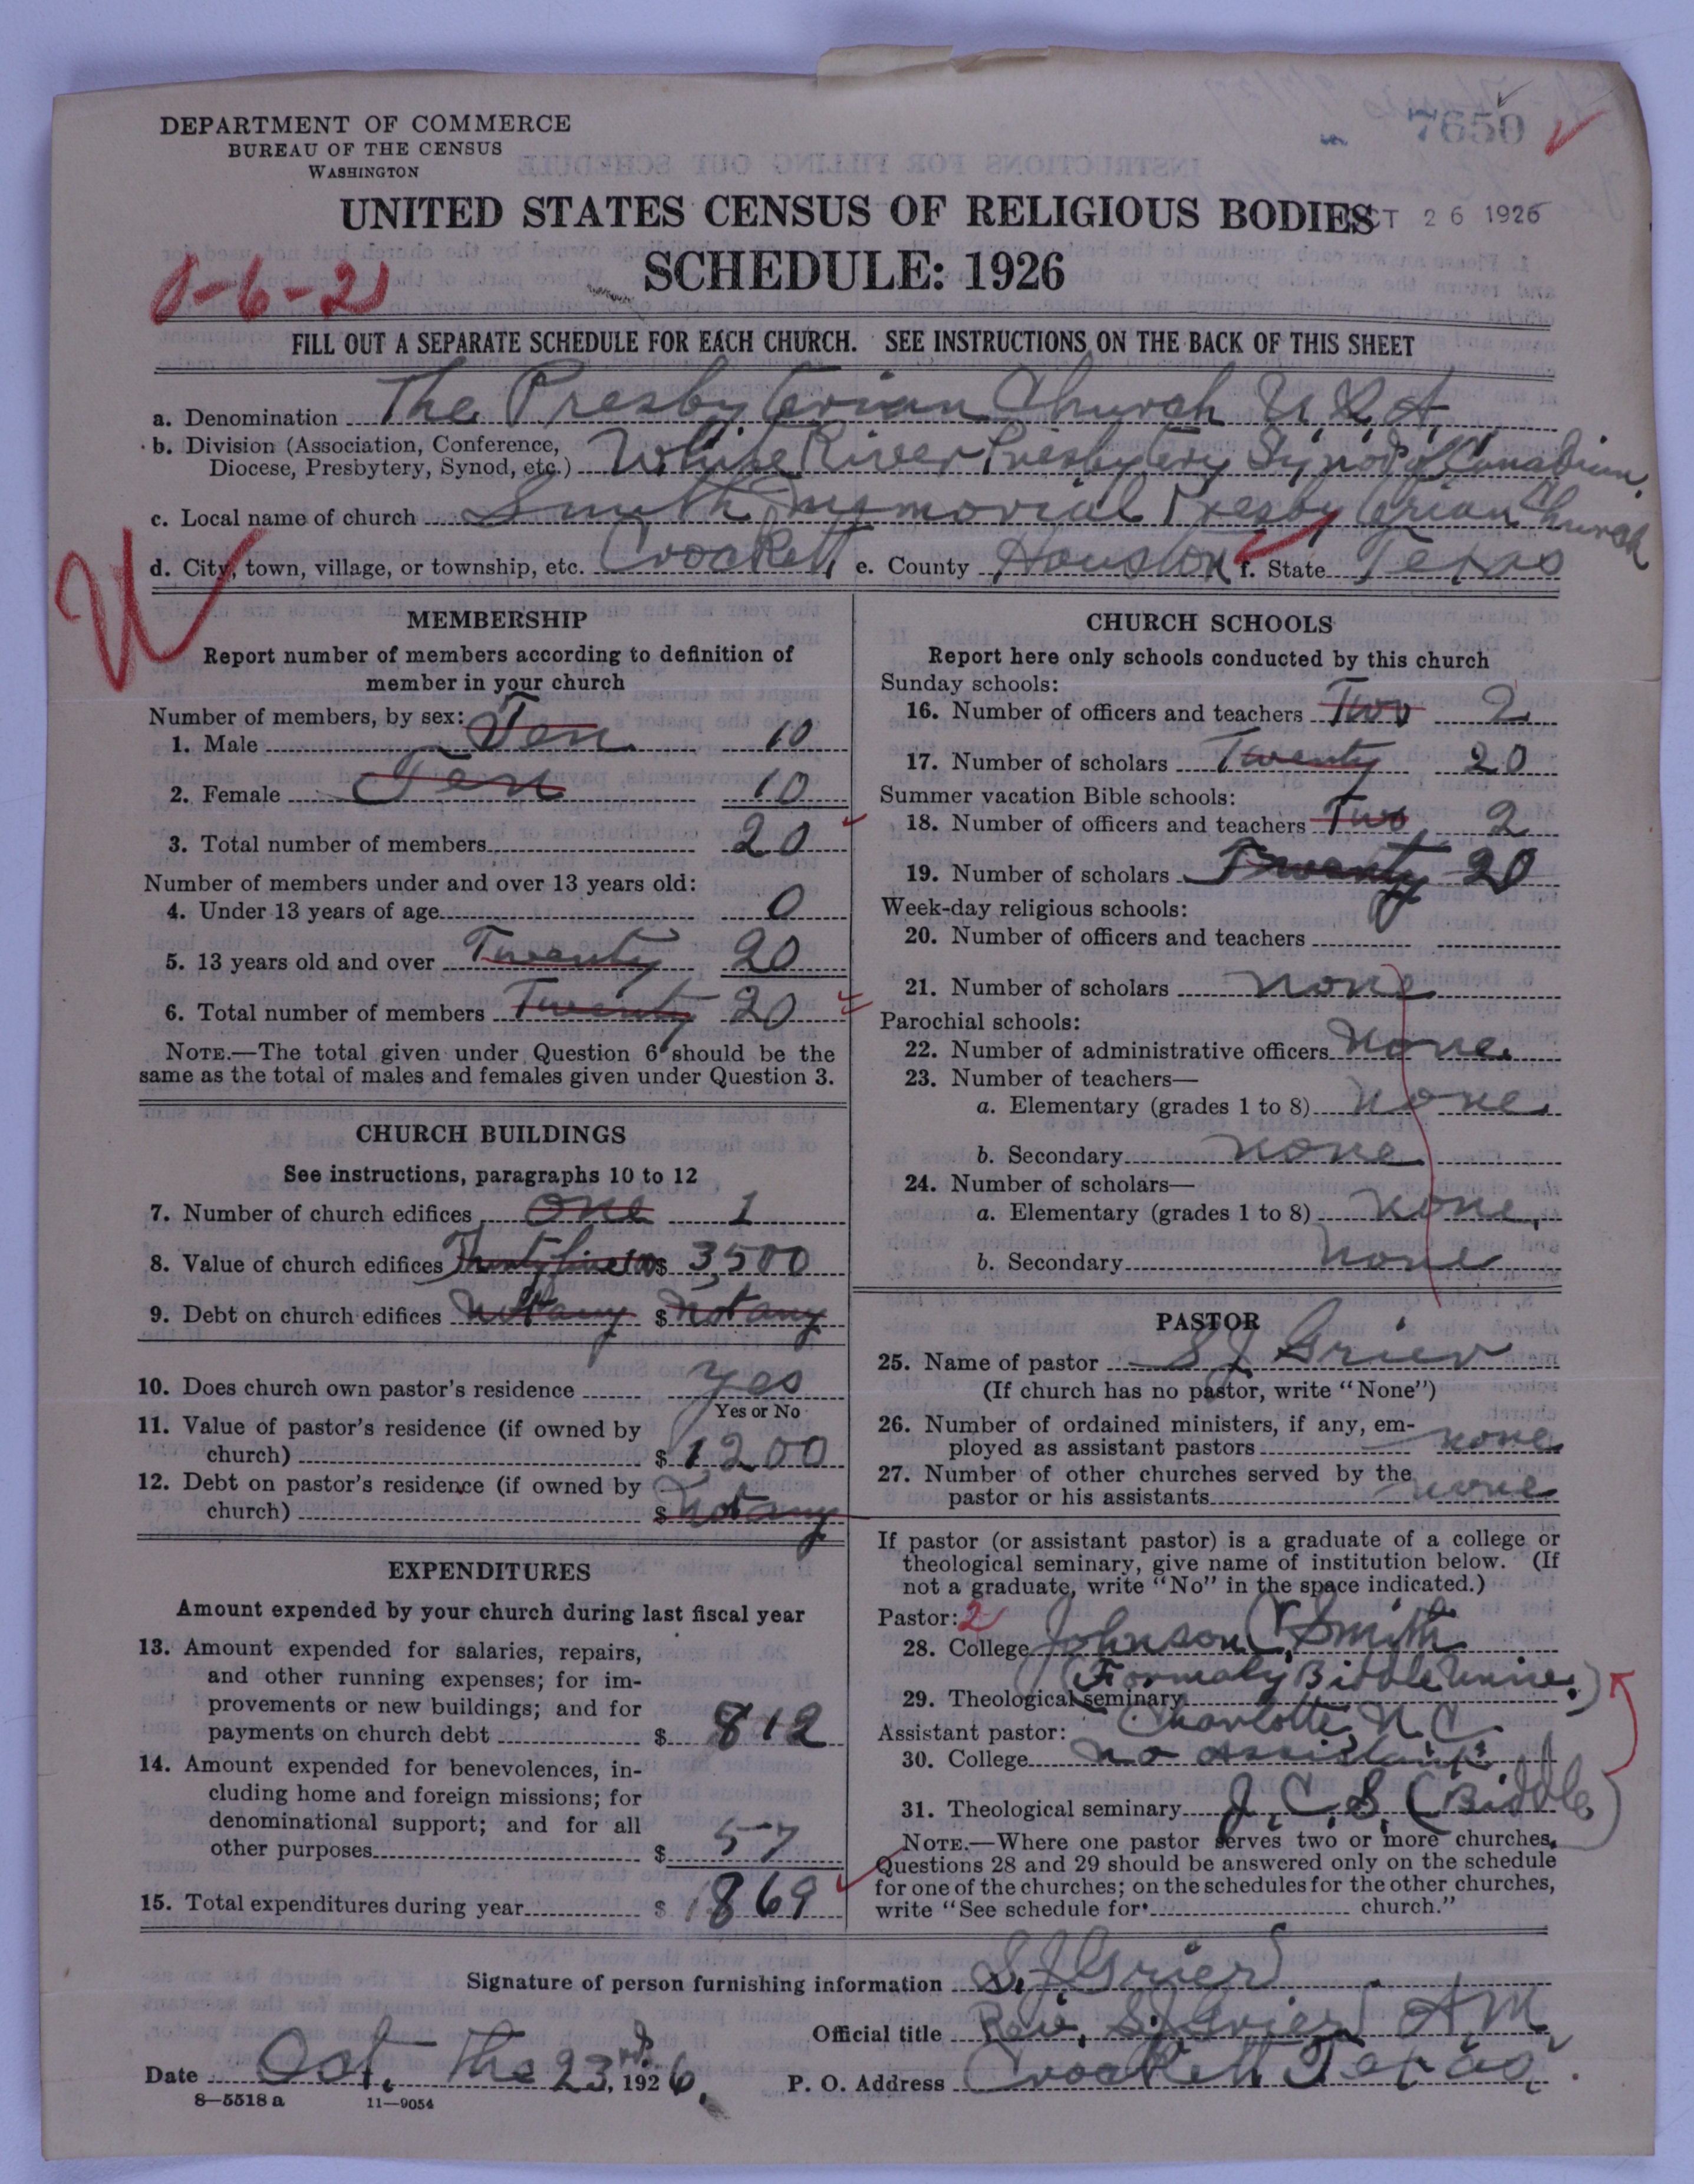 DEPARTMENT OF COMMERCE
BUREAU OF THE CENSUS
WASHINGTON
7650
UNITED STATES CENSUS OF RELIGIOUS BODIES
OCT 26 1926
SCHEDULE: 1926
0-6-21
FILL OUT A SEPARATE SCHEDULE FOR EACH CHURCH. SEE INSTRUCTIONS ON THE BACK OF THIS SHEET
a. Denomination The Presbyterian Church U.S.A.
b. Division (Association, Conference, Diocese, Presbytery, Synod, etc.) White River Presbytery Synod of Canadian.
c. Local name of church Smith Memorial Presbyterian Church
d. City, town, village, or township, etc. Crockett, e. County Houston f. State Texas
MEMBERSHIP
Report number of members according to definition of
member in your church
Number of members, by sex:
1. Male Ten 10
2. Female Ten 10
3. Total number of members 20
Number of members under and over 13 years old:
4. Under 13 years of age 0
5. 13 years old and over Twenty 20
6. Total number of members Twenty 20
NOTE.—The total given under Question 6 should be the
same as the total of males and females given under Question 3.
CHURCH BUILDINGS
See instructions, paragraphs 10 to 12
7. Number of church edifices One 1
8. Value of church edifices $ 3,500
9. Debt on church edifices Not any $ Not any
10. Does church own pastor's residence Yes
Yes or No
11. Value of pastor's residence (if owned by
church) $ 1200
12. Debt on pastor's residence (if owned by
church) $ Not any
EXPENDITURES
Amount expended by your church during last fiscal year
13. Amount expended for salaries, repairs,
and other running expenses; for im-
provements or new buildings; and for
payments on church debt $ 812
14. Amount expended for benevolences, in-
cluding home and foreign missions; for
denominational support; and for all
other purposes $ 57
15. Total expenditures during year $ 869
CHURCH SCHOOLS
Report here only schools conducted by this church
Sunday schools:
16. Number of officers and teachers Two 2
17. Number of scholars Twenty 20
Summer vacation Bible schools:
18. Number of officers and teachers Two 2
19. Number of scholars Twenty 20
Week-day religious schools:
20. Number of officers and teachers
21. Number of scholars none
Parochial schools:
22. Number of administrative officers none.
23. Number of teachers—
a. Elementary (grades 1 to 8) none.
b. Secondary none
24. Number of scholars—
a. Elementary (grades 1 to 8) none,
b. Secondary none
PASTOR
25. Name of pastor S J Grier
(If church has no pastor, write "None")
26. Number of ordained ministers, if any, em-
ployed as assistant pastors none
27. Number of other churches served by the
pastor or his assistants none
If pastor (or assistant pastor) is a graduate of a college or
theological seminary, give name of institution below. (If
not a graduate, write "No" in the space indicated.)
Pastor: 2
28. College Johnson C. Smith
(Formaly Biddle Unive.)
29. Theological seminary
Charlotte, N.C.
Assistant pastor:
30. College no assistant
31. Theological seminary J. C. S. (Biddle)
NOTE.—Where one pastor serves two or more churches,
Questions 28 and 29 should be answered only on the schedule
for one of the churches; on the schedules for the other churches,
write "See schedule for church."
Signature of person furnishing information S. J. Grier
Official title Rev. S. J. Grier A.M.
Date Oct. the 23rd, 1926. P. O. Address Crockett Texas.
8—5518 a 11—9054